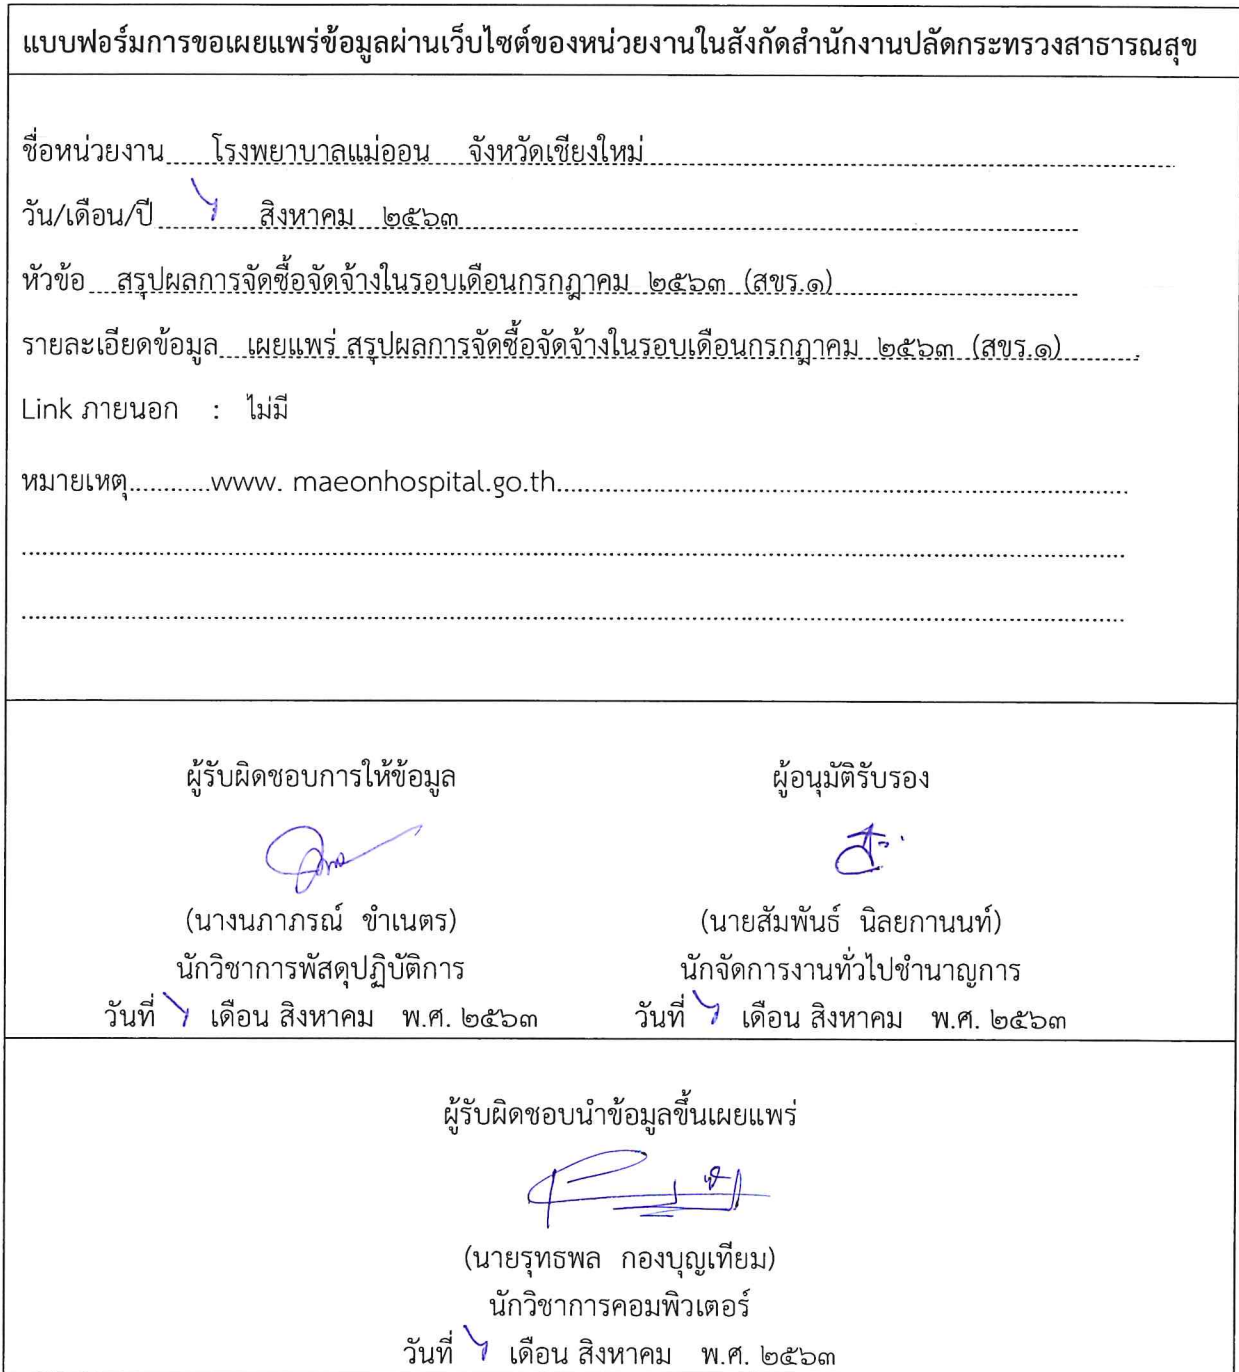 แบบฟอร์มการขอเผยแพร่ข้อมูลผ่านเว็บไซต์ของหน่วยงานในสังกัดสำนักงานปลัดกระทรวงสาธารณสุข
ชื่อหน่วยงาน......โรงพยาบาลแม่ออน จังหวัดเชียงใหม่
วัน/เดือน/ปี สิงหาคม ๒๕๖๓
หัวข้อ สรุปผลการจัดซื้อจัดจ้างในรอบเดือนกรกฎาคม ๒๕๖๓ (สขร.๑)
รายละเอียดข้อมูล เผยแพร่ สรุปผลการจัดซื้อจัดจ้างในรอบเดือนกรกฎาคม ๒๕๖๓ (สขร.๑)
Link ภายนอก : ไม่มี
หมายเหตุ...........www. maeonhospital.go.th
ผู้รับผิดชอบการให้ข้อมูล ผู้อนุมัติรับรอง
(นางนภาภรณ์ ขำเนตร) (นายสัมพันธ์ นิลยกานนท์)
นักวิชาการพัสดุปฏิบัติการ นักจัดการงานทั่วไปชำนาญการ
วันที่ เดือน สิงหาคม พ.ศ. ๒๕๖๓ วันที่ เดือน สิงหาคม พ.ศ. ๒๕๖๓
ผู้รับผิดชอบนำข้อมูลขึ้นเผยแพร่
(นายรุทธพล กองบุญเทียม)
นักวิชาการคอมพิวเตอร์
วันที่ เดือน สิงหาคม พ.ศ. ๒๕๖๓